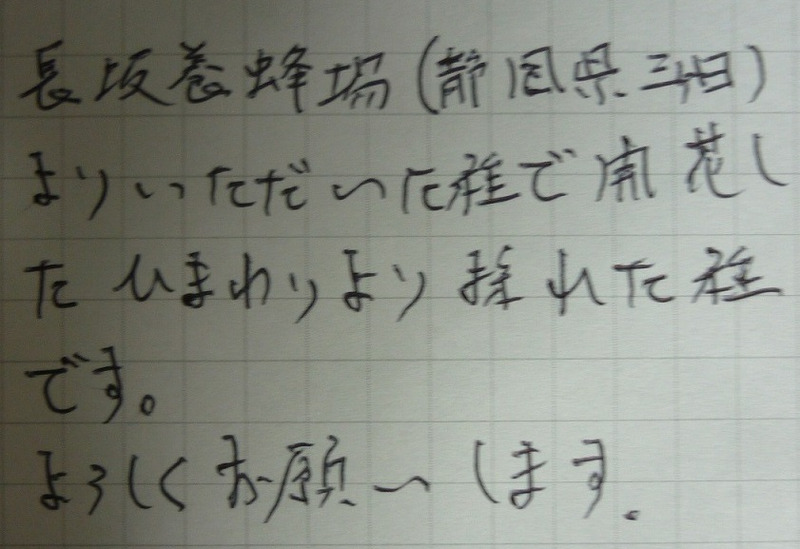 長坂養蜂場(静岡県三ヶ日)
よりいただいた種で開花し
たひまわりより採れた種
です。
よろしくお願いします。